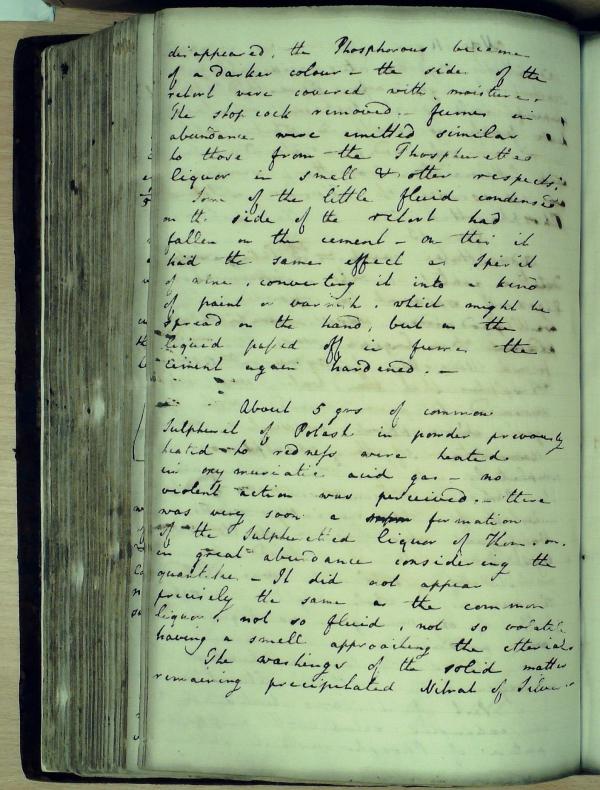 disappeared, the Phosphorous became
of a darker colour – the side of the
retort were covered with moisture.
The stop cock removed – fumes in
abundance were emitted similar
to those from the Phosphuretted
liquor in smell & other respects.
Some of the little fluid condensed
on the side of the retort had
fallen on the cement – on this it
had the same effect as Spirit
of wine, converting it into a kind
of paint or varnish, which might be
spread on the hand, but as the
liquid passed off in fumes the
cement again hardened. –
About 5 grs of common
Sulphuret of Potash in powder previously
heated to redness were heated
in oxymuriatic acid gas – no
violent action was perceived. – there
was very soon a formation
of the Sulphuretted liquor of Thomson.
in great abundance considering the
quantities. – It did not appear
precisely the same as the common
liquor, not so fluid, not so volatile
having a smell approaching the etherial
The washings of the solid matter
remaining precipitated Nitrat of Silver